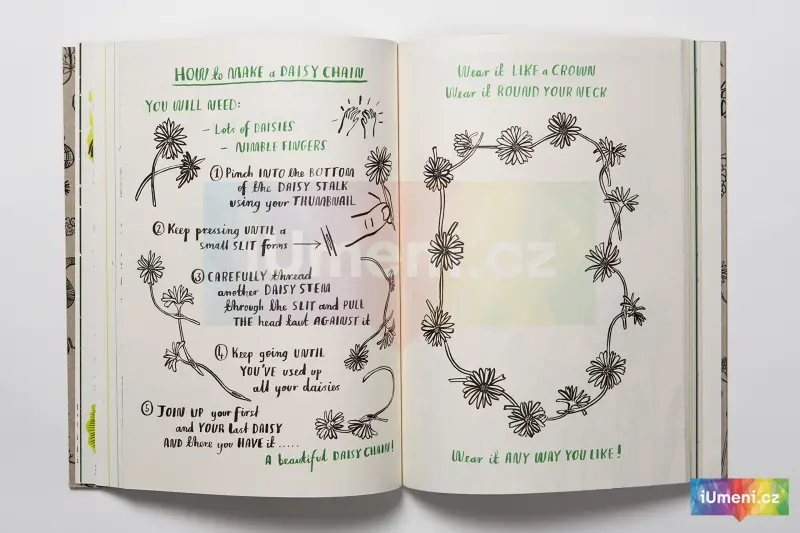 HOW to MAKE a DAISY CHAIN
YOU WILL NEED:
- Lots of DAISIES
- NIMBLE FINGERS
① Pinch INTO the BOTTOM
of the DAISY STALK
using your THUMBNAIL
② Keep pressing UNTIL a
small SLIT forms
③ CAREFULLY thread
another DAISY STEM
through the SLIT and PULL
THE head taut AGAINST it
④ Keep going UNTIL
YOU'VE used up
all your daisies
⑤ JOIN UP your first
and YOUR last DAISY
AND there you HAVE it .....
A beautiful DAISY CHAIN!
Wear it LIKE a CROWN
Wear it ROUND YOUR NECK
Wear it ANY WAY YOU LIKE!
iUmeni.cz
iUmeni.cz